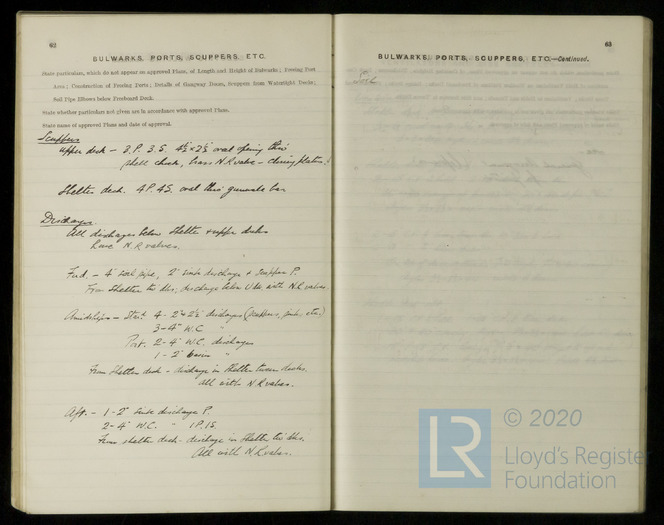 62
BULWARKS, PORTS, SCUPPERS, ETC.
State particulars, which do not appear on approved Plans, of Length and Height of Bulwarks; Freeing Port
Area; Construction of Freeing Ports; Details of Gangway Doors, Scuppers from Watertight Decks;
Soil Pipe Elbows below Freeboard Deck.
State whether particulars not given are in accordance with approved Plans.
State name of approved Plans and date of approval.
Scuppers
Upper deck – 3.P. 3.S. 4½ x 2½ oval opening thro
shell chock, brass N.R valve – closing
Shelter deck. 4P. 4S. oval thro gunwale bar
Discharges
All discharges below Shelter & upper decks
have N.R valves.
Fwd. – 4" soil pipe, 2" sink discharge & scupper P.
From Shelter tw dks, discharge below U dk with N.R valves
Amidships – Star. 4 - 2" & 2½" discharges (scuppers, sinks etc.)
3 – 4" W.C "
Port. 2 – 4" W.C. discharges
1 – 2" basin "
From Shelter deck – discharge in Shelter tween decks.
All with N.R valves.
Aft. – 1 - 2" sink discharge P.
2 – 4" W.C. " 1P. 1S.
From shelter deck – discharge in Shelter tw dks.
All with N.R valves.
63
BULWARKS, PORTS, SCUPPERS, ETC.—Continued.
LR
© 2020
Lloyd's Register
Foundation